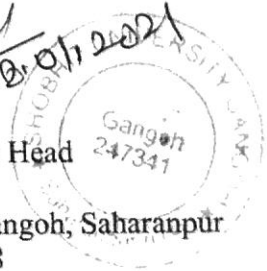 01, 2021
SHOBHIT UNIVERSITY GANGOH
Gangoh
247341
Head
angoh, Saharanpur